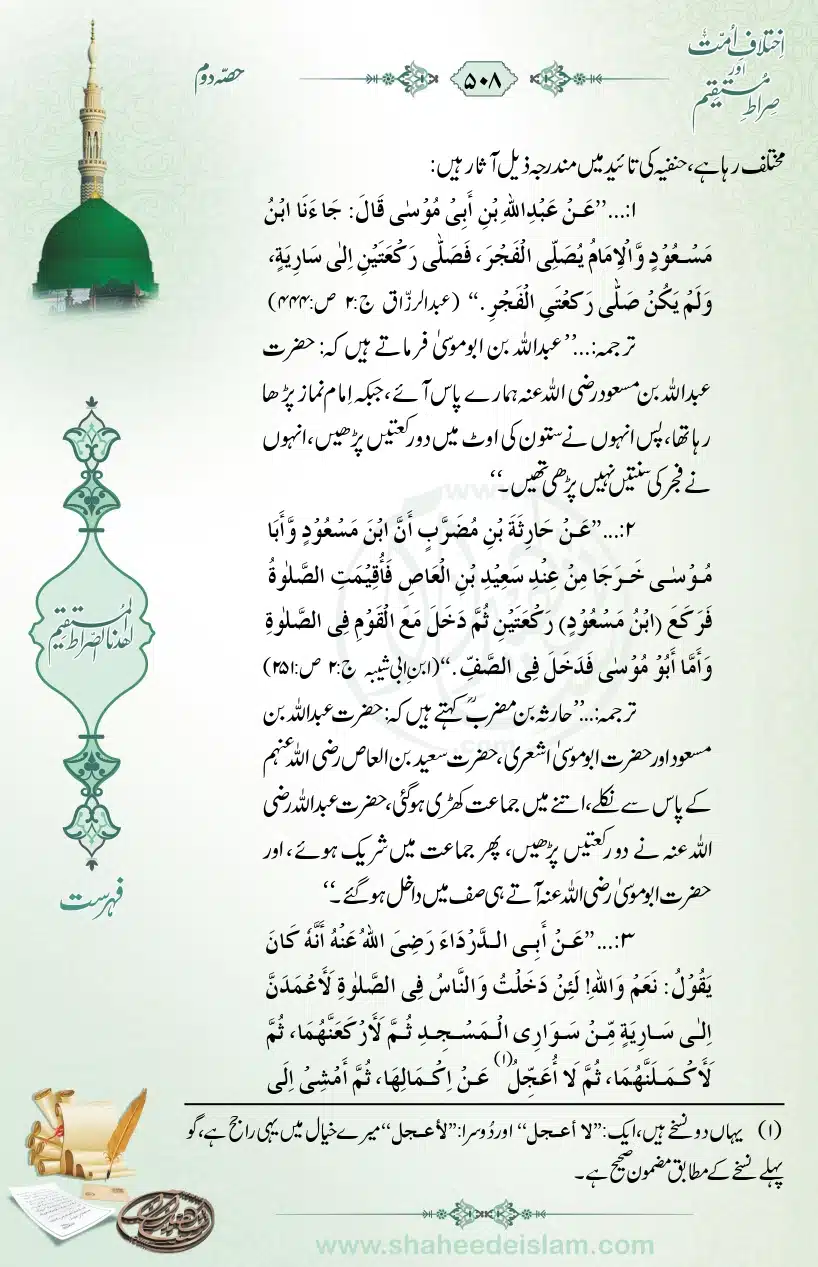 اِختلافِ اُمّت
اور
صِراطِ مُستقیم
۵۰۸
حصّہ دوم
مختلف رہا ہے، حنفیہ کی تائید میں مندرجہ ذیل آثار ہیں:
۱:...’’عَنْ عَبْدِاللهِ بْنِ أَبِیْ مُوْسٰی قَالَ: جَاءَنَا ابْنُ
مَسْعُوْدٍ وَّالْاِمَامُ یُصَلِّی الْفَجْرَ، فَصَلّٰی رَکْعَتَیْنِ اِلٰی سَارِیَةٍ،
وَلَمْ یَکُنْ صَلّٰی رَکْعَتَیِ الْفَجْرِ.‘‘ (عبدالرزّاق ج:۲ ص:۴۴۴)
ترجمہ:...’’عبداللہ بن ابوموسیٰ فرماتے ہیں کہ: حضرت
عبداللہ بن مسعود رضی اللہ عنہ ہمارے پاس آئے، جبکہ اِمام نماز پڑھا
رہا تھا، پس انہوں نے ستون کی اوٹ میں دو رکعتیں پڑھیں، انہوں
نے فجر کی سنتیں نہیں پڑھی تھیں۔‘‘
۲:...’’عَنْ حَارِثَةَ بْنِ مُضَرَّبٍ أَنَّ ابْنَ مَسْعُوْدٍ وَّأَبَا
مُوْسٰی خَرَجَا مِنْ عِنْدِ سَعِیْدِ بْنِ الْعَاصِ فَأُقِیْمَتِ الصَّلٰوةُ
فَرَکَعَ (ابْنُ مَسْعُوْدٍ) رَکْعَتَیْنِ ثُمَّ دَخَلَ مَعَ الْقَوْمِ فِی الصَّلٰوةِ
وَأَمَّا أَبُوْ مُوْسٰی فَدَخَلَ فِی الصَّفِّ.‘‘ (ابنِ ابی شیبہ ج:۲ ص:۲۵۱)
ترجمہ:...’’حارثہ بن مضربؒ کہتے ہیں کہ: حضرت عبداللہ بن
مسعود اور حضرت ابوموسیٰ اشعری، حضرت سعید بن العاص رضی اللہ عنہم
کے پاس سے نکلے، اتنے میں جماعت کھڑی ہوگئی، حضرت عبداللہ رضی
اللہ عنہ نے دو رکعتیں پڑھیں، پھر جماعت میں شریک ہوئے، اور
حضرت ابوموسیٰ رضی اللہ عنہ آتے ہی صف میں داخل ہوگئے۔‘‘
۳:...’’عَنْ أَبِی الدَّرْدَاءَ رَضِیَ اللهُ عَنْهُ أَنَّهٗ کَانَ
یَقُوْلُ: نَعَمْ وَاللهِ! لَئِنْ دَخَلْتُ وَالنَّاسُ فِی الصَّلٰوةِ لَأَعْمَدَنَّ
اِلٰی سَارِیَةٍ مِّنْ سَوَارِی الْمَسْجِدِ ثُمَّ لَأَرْکَعَنَّهُمَا، ثُمَّ
لَأَکْمَلَنَّهُمَا، ثُمَّ لَا أُعَجِّلُ(۱) عَنْ اِکْمَالِهَا، ثُمَّ أَمْشِیْ اِلَی
(۱) یہاں دو نسخے ہیں، ایک: ’’لا أعجل‘‘ اور دُوسرا: ’’لأعجل‘‘ میرے خیال میں یہی راجح ہے، گو
پہلے نسخے کے مطابق مضمون صحیح ہے۔
اهدنا الصراط المستقیم
فہرست
www.shaheedeislam.com